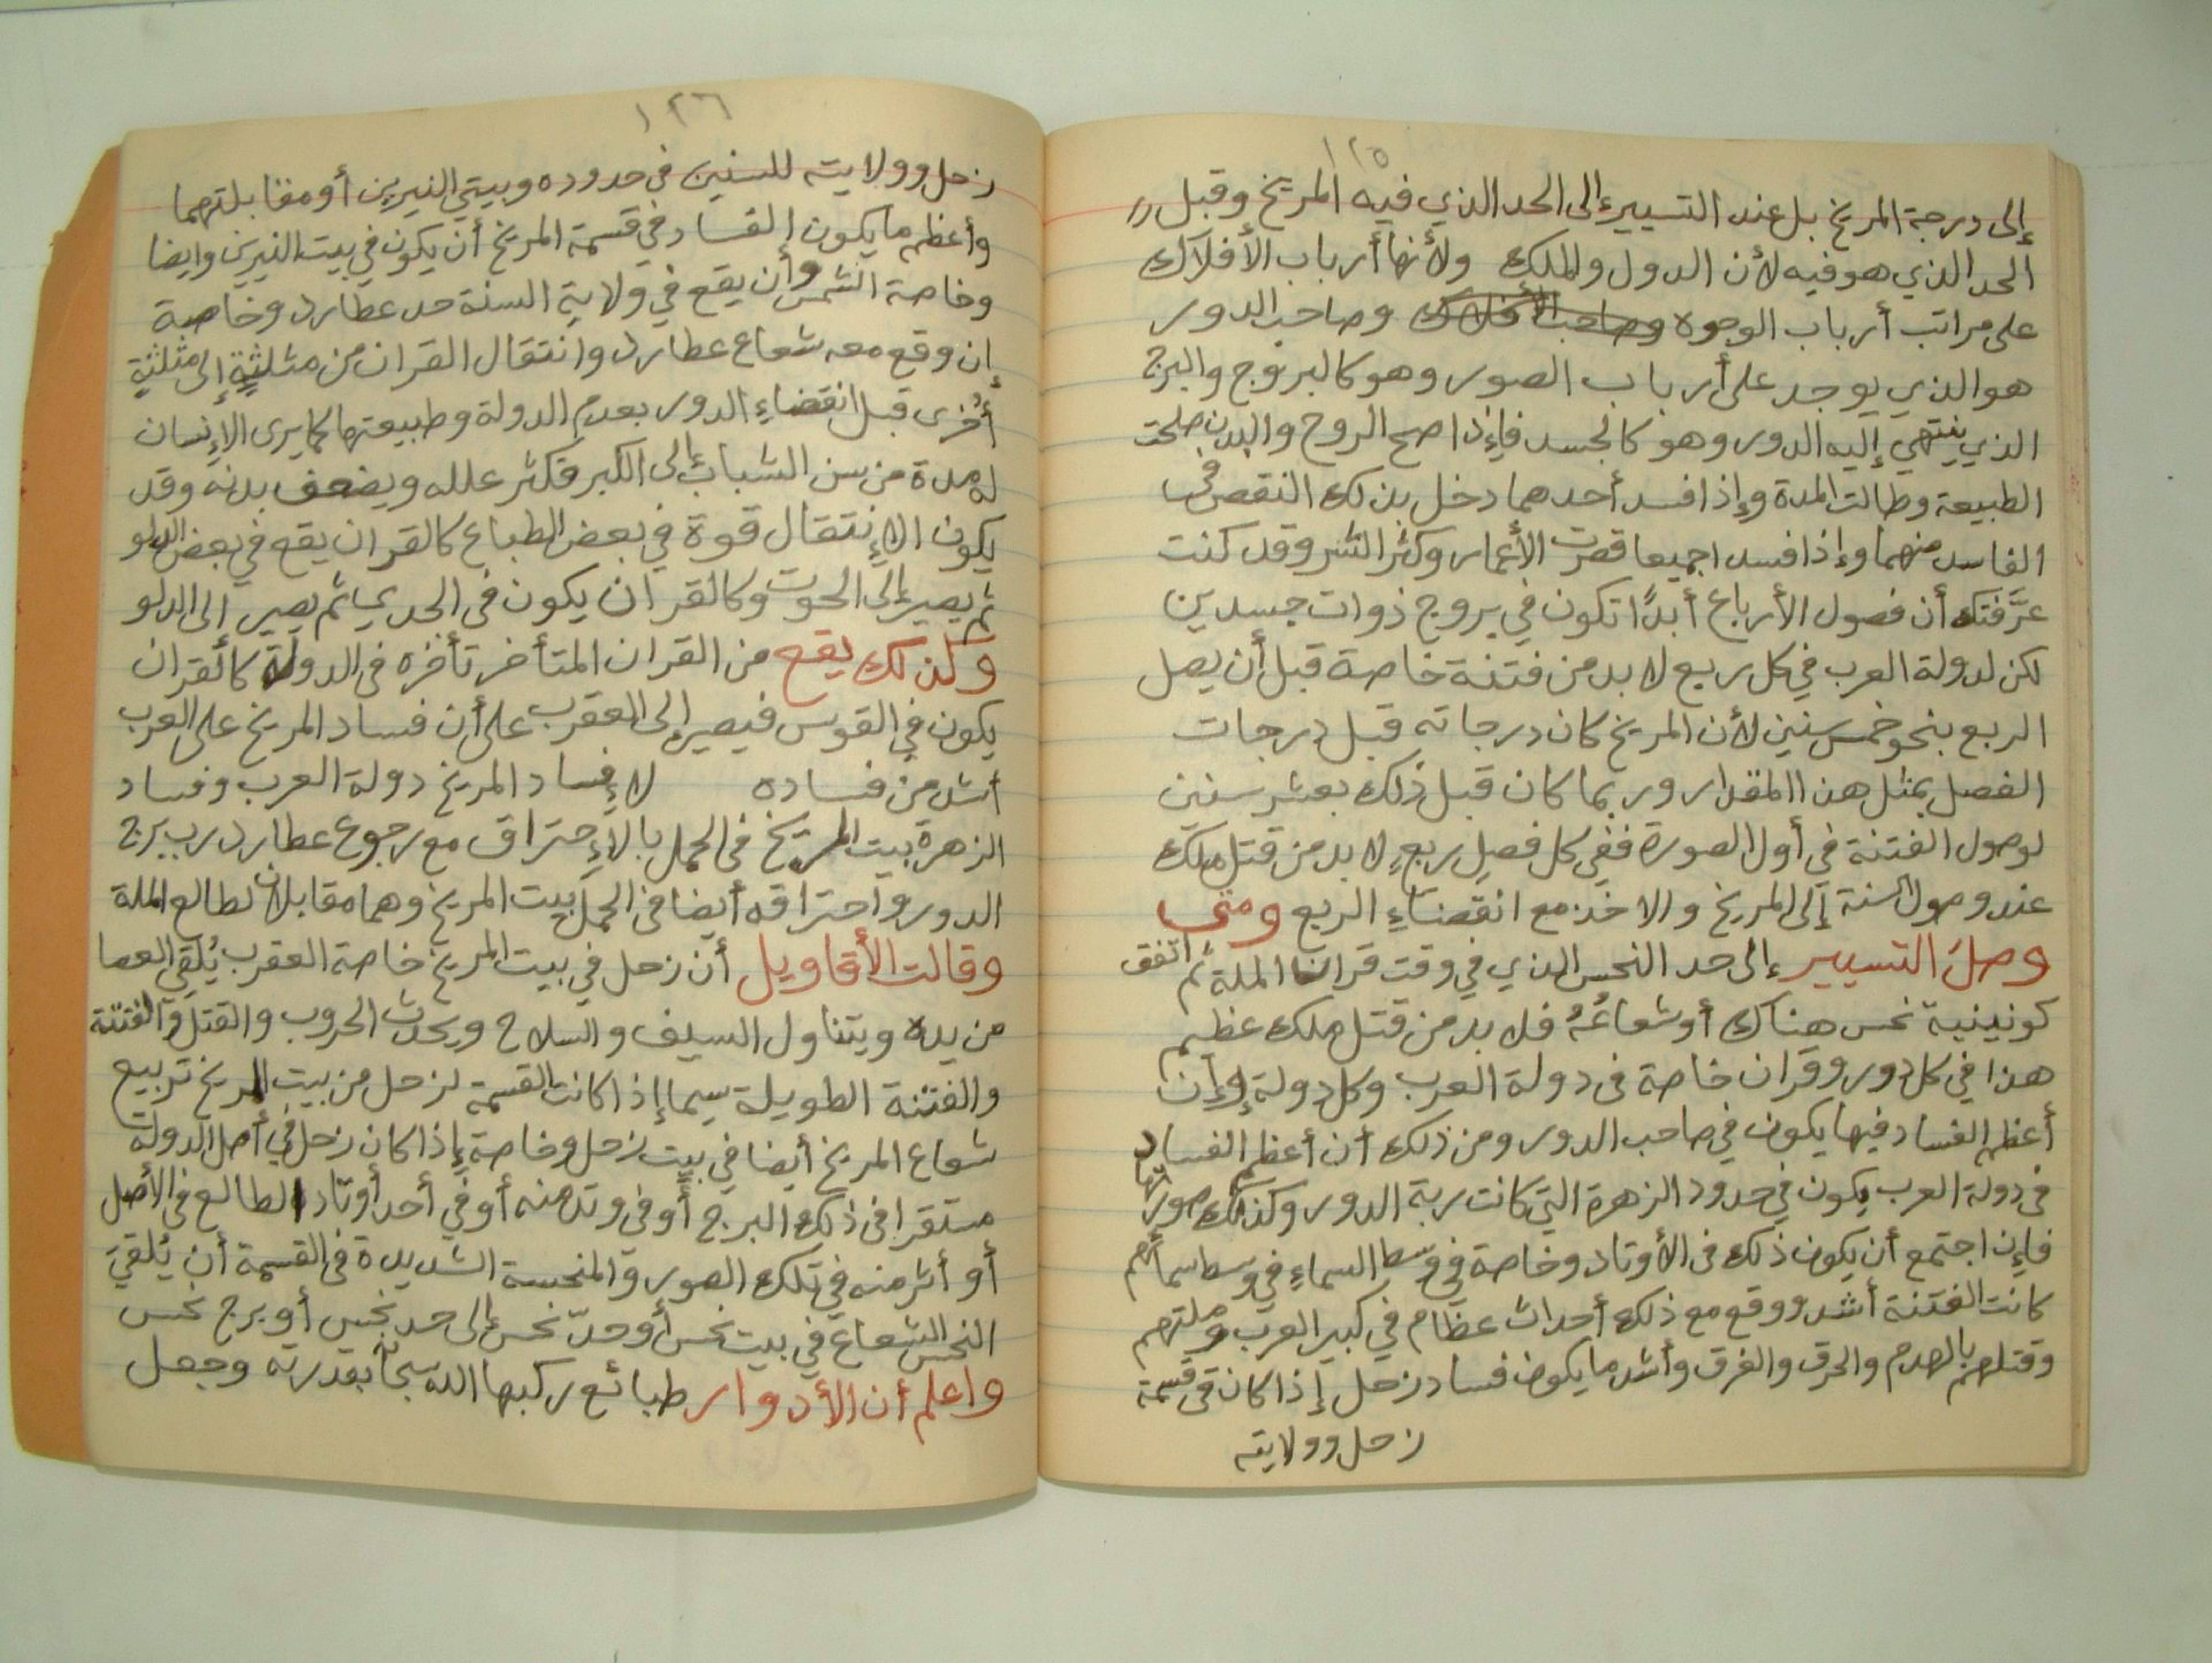 ١٢٥
إلى درجة المريخ بل عند التسيير إلى الحد الذي فيه المريخ وقبل
الحد الذي هو فيه لأن الدول والملك ولأنها أرباب الأفلاك
على مراتب أرباب الوجوه وصاحب الأفلاك وصاحب الدور
هو الذي يوجد على أرباب الصور وهو كالبروج والبرج
الذي ينتهي إليه الدور وهو كالجسد فإذا صح الروح والبدن صلحت
الطبيعة وطالت المدة وإذا فسد أحدهما دخل بذلك النقص في
الفاسد منهما وإذا فسد اجميعا قصرت الأعمار وكثر الشر وقد كنت
عرَّفتك أن فصول الأرباع أبدًا تكون في بروج ذوات جسدين
لكن لدولة العرب في كل ربع لا بد من فتنة خاصة قبل أن يصل
الربع بنحو خمس سنين لأن المريخ كان درجاته قبل درجات
الفصل بمثل هذا المقدار وربما كان قبل ذلك بعشر سنين
لوصول الفتنة في أول الصورة ففي كل فصل ربعٍ لا بد من قتل ملك
عند وصول السنة إلى المريخ والاخذ مع انقضاءِ الربع ومتى
وصل التسيير إلى حد النحس الذي في وقت قران الملة ثم اتفق
كونينية نحس هناك أو شعاعُهُ فلا بد من قتل ملك عظيم
هذا في كل دور وقران خاصة في دولة العرب وكل دولة وإن
أعظم الفساد فيها يكون في صاحب الدور ومن ذلك أن أعظم الفساد
في دولة العرب يكون في حدود الزهرة التي كانت ربة الدور وكذلك صورتها
فإن اجتمع أن يكون ذلك في الأوتاد وخاصة في وسط السماءِ في وسط سمائهم
كانت الفتنة أشد ووقع مع ذلك أحداث عظام في كبير العرب وملتهم
وقتلهم بالهدم والحرق والغرق وأشد ما يكون فساد زحل إذا كان في قسمة
زحل وولايته
١٢٦
زحل وولايته للسنين في حدوده وبيتي النيرين أو مقابلتهما
وأعظم ما يكون الفساد في قسمة المريخ أن يكون في بيت النيرين وايضا
وخاصة الشمس وأن يقع في ولاية السنة حد عطارد وخاصة
إن وقع معه شعاع عطارد وانتقال القران من مثلثةٍ إلى مثلثةٍ
أخرى قبل انقضاءِ الدور بعدم الدولة وطبيعتها كما يرى الإنسان
له مدة من سن الشباب إلى الكبر فكثر علله ويضعف بدنه وقد
يكون الإنتقال قوة في بعض الطباع كالقران يقع في بعض الدلو
ثم يصير إلى الحوت وكالقران يكون في الجدي ثم يصير الى الدلو
وكذلك يقع من القران المتأخر تأخره في الدولة كالقران
يكون في القوس فيصير إلى العقرب على أن فساد المريخ على العرب
أشد من فساده لإفساد المريخ دولة العرب وفساد
الزهرة بيت المريخ في الحمل بالإحتراق مع رجوع عطارد رب برج
الدور واحتراقه أيضا في الحمل بيت المريخ وهما مقابلان لطالع الملة
وقالت الأقاويل أن زحل في بيت المريخ خاصة العقرب يُلقي العصا
من يده ويتناول السيف والسلاح ويحدث الحروب والقتل والفتنة
والفتنة الطويلة سيما إذا كانت القسمة لزحل من بيت المريخ تربيع
شعاع المريخ أيضا في بيت زحل وخاصة إذا كان زحل في أصل الدولة
مستقرا في ذلك البرج أو في وتد منه أو في أحد أوتاد الطالع في الأصل
أو أثر منه في تلك الصور والمنحسة الشديدة في القسمة أن يُلقيَ
النحس الشعاع في بيت نحس أو حدّ نحس إلى حد نحس أو برج نحس
واعلم أن الأدوار طبائع ركبها الله سبحانه بقدرته وجعل